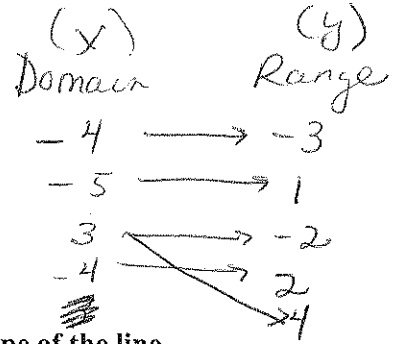 (x) (y)
Domain Range
-4 → -3
-5 → 1
3 → -2
-4 → 2
4
pe of the line